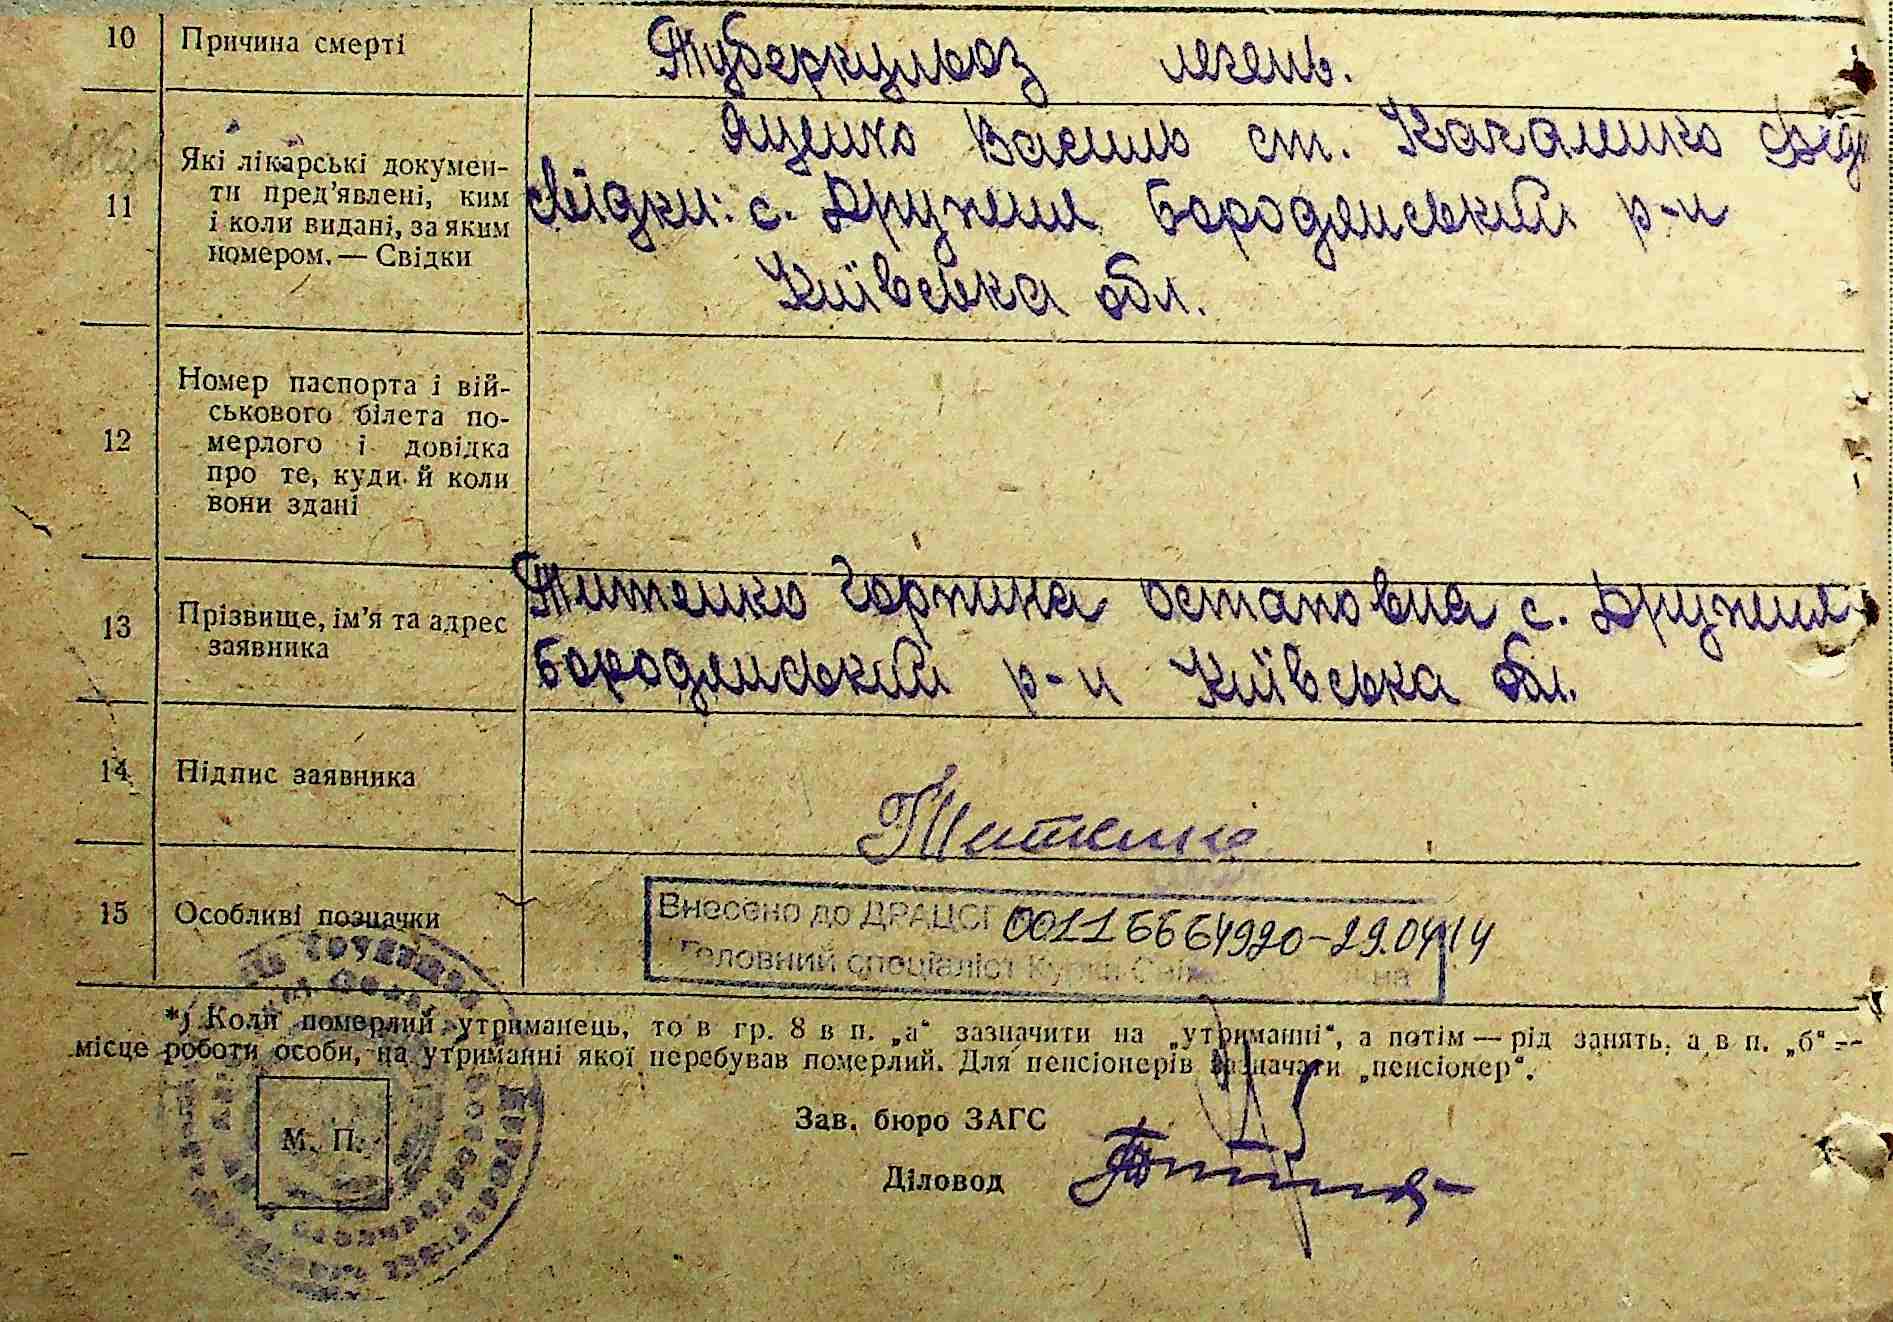 10 Причина смерті Туберкульоз легень.
11 Які лікарські докумен-
ти пред'явлені, ким
і коли видані, за яким
номером. — Свідки
Яценко Василь ст. Качаленко
свідки: с. Дружня Бородянський р-н
Київська обл.
12 Номер паспорта і вій-
ськового білета по-
мерлого і довідка
про те, куди й коли
вони здані
13 Прізвище, ім'я та адрес
заявника
Титенко Горпина Остаповна с. Дружня
Бородянський р-н Київська обл.
14 Підпис заявника
15 Особливі позначки
Внесено до ДРАЦСГ 00116664920-29.04.14
Головний спеціаліст
*) Коли померлий утриманець, то в гр. 8 в п. „а“ зазначити на „утриманні“, а потім — рід занять, а в п. „б“ —
місце роботи особи, на утриманні якої перебував померлий. Для пенсіонерів зазначати „пенсіонер“.
Зав. бюро ЗАГС
М. П.
Діловод